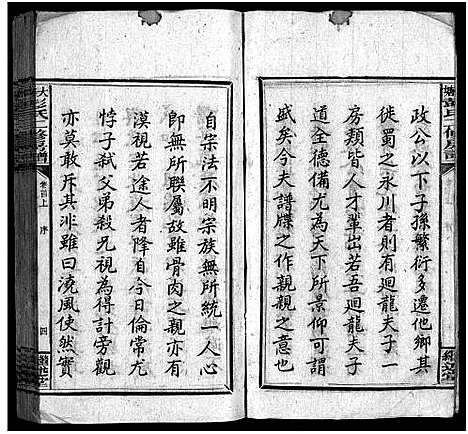 政公以下子孫繁衍多遷他鄉其
徙蜀之永川者則有迴龍夫子一
房類皆人才輩出若吾迴龍夫子
道全德備尤為天下所景仰可謂
盛矣今夫譜牒之作親親之意也
自宗法不明宗族無所統一人心
即無所聯屬故雖骨肉之親亦有
漠視若途人者降自今日倫常尤
悖子弒父弟殺兄視為得計旁觀
亦莫敢斥其非雖曰澆風使然實
卷首上 序 四